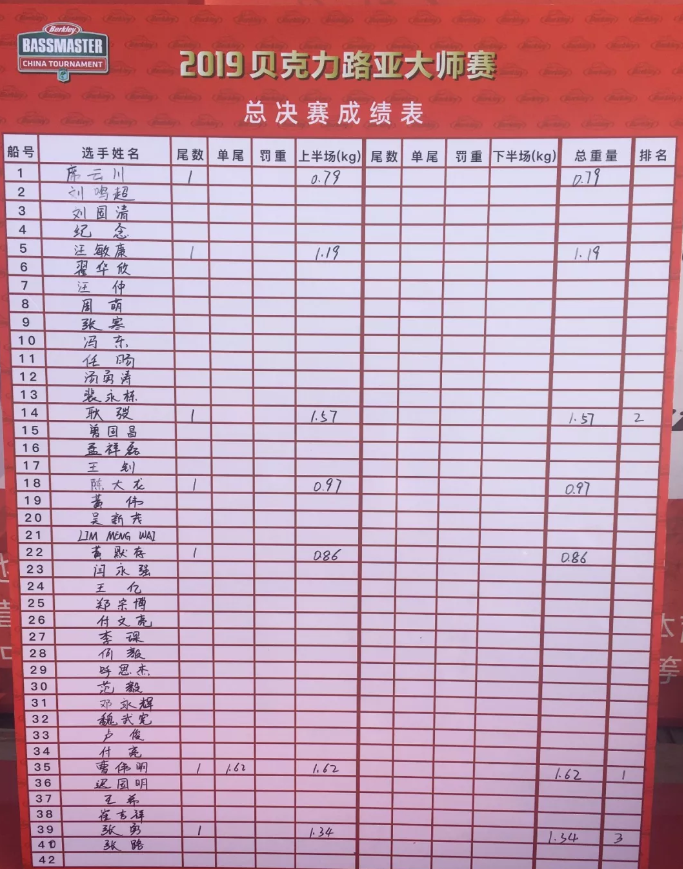 Berkley
BASSMASTER
CHINA TOURNAMENT
2019贝克力路亚大师赛
总决赛成绩表
船号 选手姓名 尾数 单尾 罚重 上半场(kg) 尾数 单尾 罚重 下半场(kg) 总重量 排名
1 席云川 1 0.79 0.79
2 刘鸣超
3 刘国清
4 纪念
5 汪敏康 1 1.19 1.19
6 翟华欣
7 汪仲
8 周萌
9 张寒
10 冯东
11 任
12 汤勇涛
13 裴永栋
14 耿强 1 1.57 1.57 2
15 曾国昌
16 孟祥磊
17 王钊
18 陈大龙 1 0.97 0.97
19 黄伟
20 吴新茂
21 LIM MENG WAI
22 黄耿存 1 0.86 0.86
23 闫永强
24 王亿
25 郑宗博
26 付文亮
27 李琛
28 何毅
29 思杰
30 范毅
31 邓永辉
32 魏武宪
33 卢俊
34 付亮
35 曹伟明 1 1.62 1.62 1.62 1
36 国明
37 王弟
38 崔吉祥
39 张勇 1 1.34 1.34 3
40 张路
42